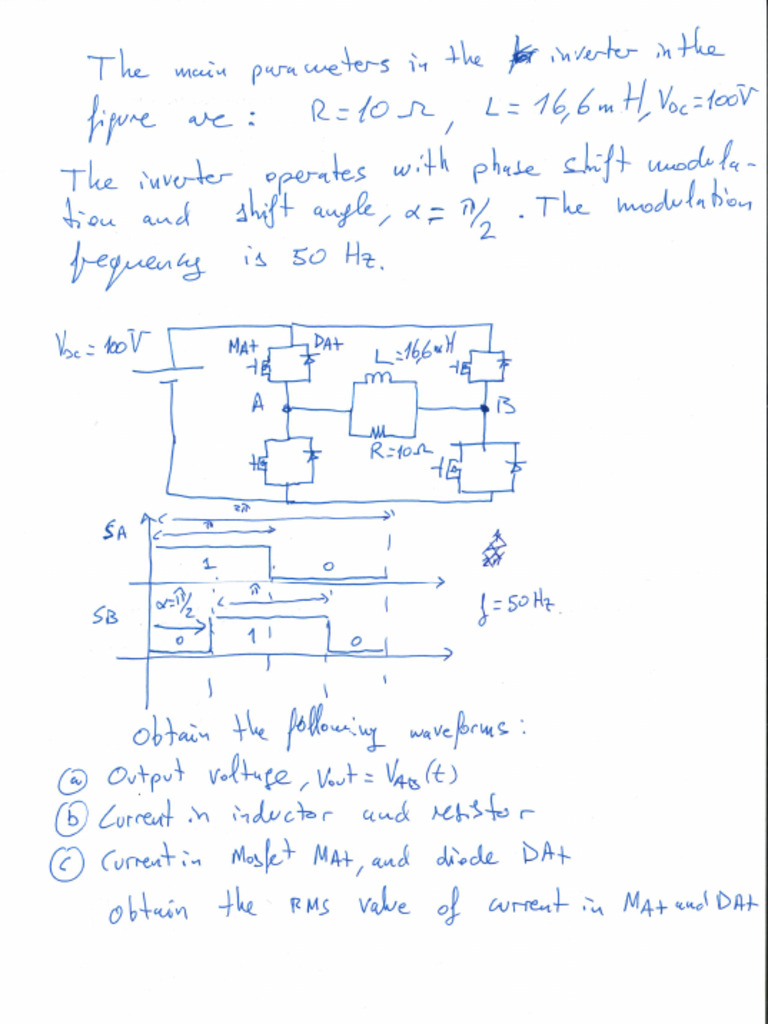 The main parameters in the inverter in the
figure are: R=10 Ω, L=16,6mH, VDC=100V
The inverter operates with phase shift modula-
tion and shift angle, α = π/2. The modulation
frequency is 50 Hz.
VDC = 100V
MA+ DA+
L=16,6mH
A B
R=10Ω
2π
SA π
1 0
α=π/2 π
f=50Hz.
SB
0 1 0
Obtain the following waveforms:
(a) Output voltage, Vout = VAB(t)
(b) Current in inductor and resistor
(c) Current in Mosfet MA+, and diode DA+
obtain the RMS value of current in MA+ and DA+